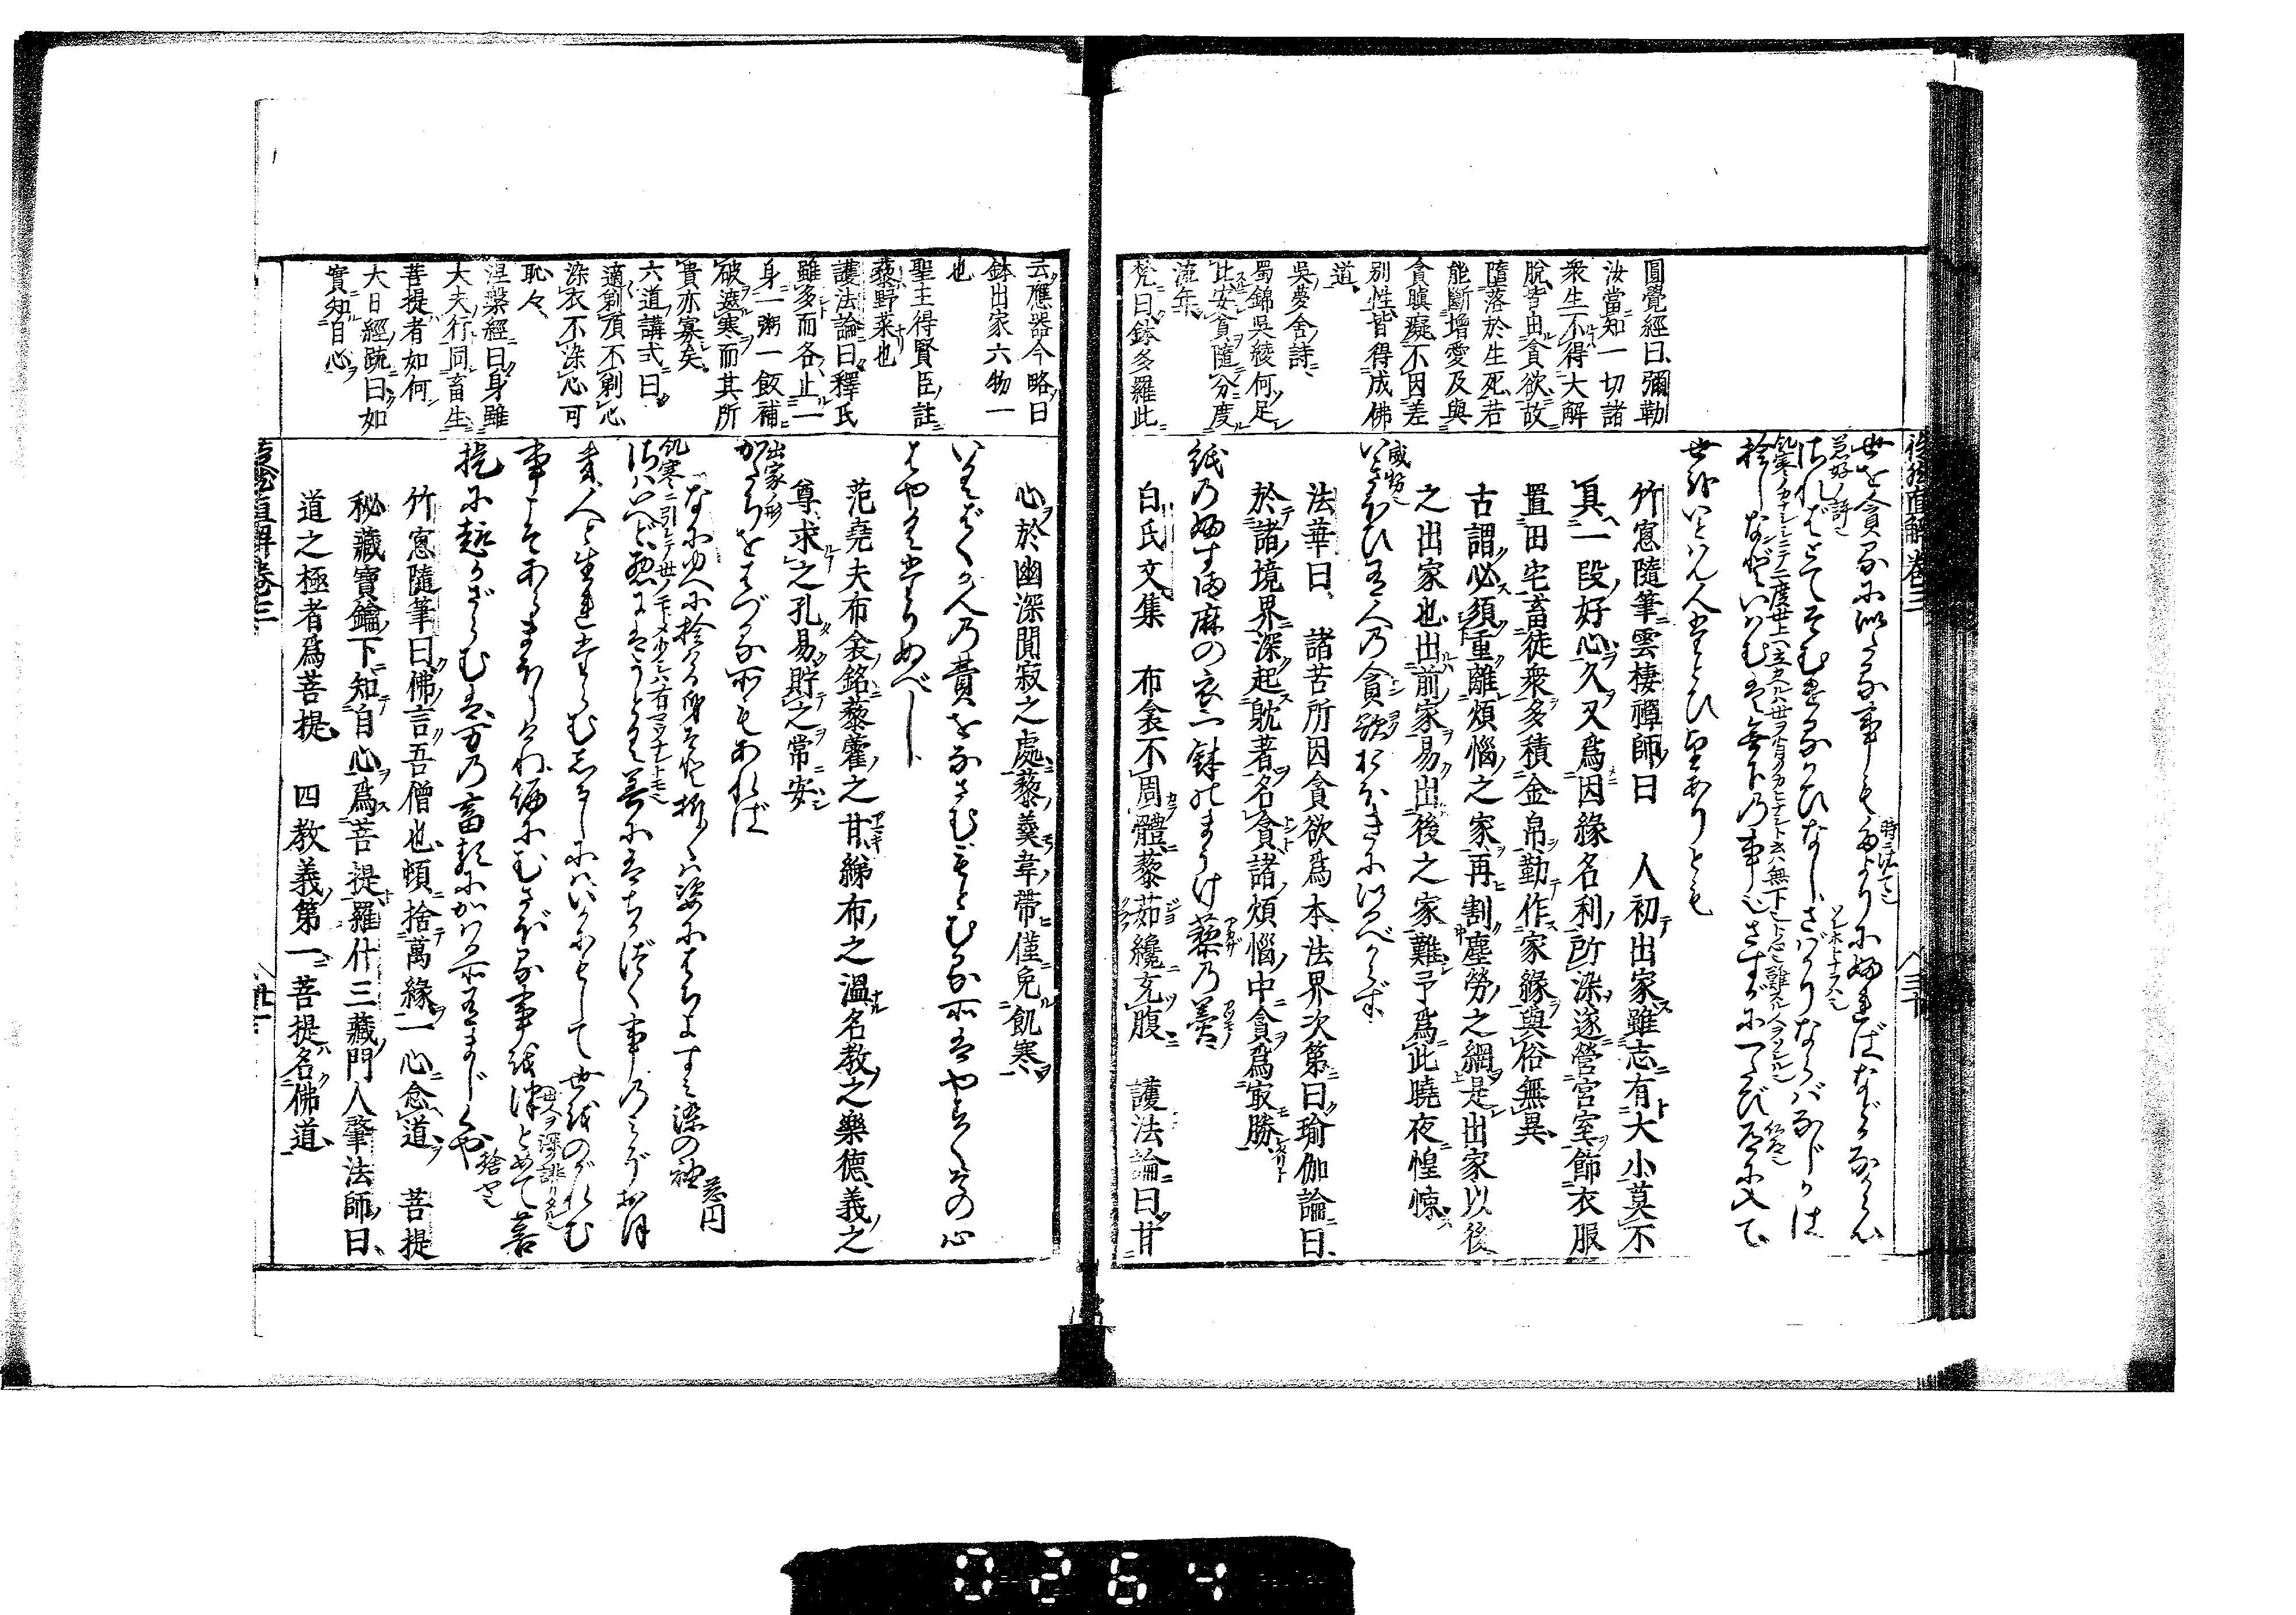 圓覺經曰彌勒
汝當知一切諸
衆生不得大解
脫皆由貪欲故
墮落於生死若
能斷增愛及與
貪瞋癡不因差
別性皆得成佛
道
吳夢舍詩
蜀錦吳綾何足
比安貪隨分度
流年
梵曰鉢多羅此
世を貪るに似たる事もたよりにふればなどかなからん
さればとてそむけるかひなしさばかりならばなじかは
捨しなどいはむは無下の事也さすがに一たび道に入て
世をいとはん人たとひ望ありとも
竹窓隨筆雲棲禪師曰　人初出家雖志有大小莫不
具一段好心久又爲因緣名利所染遂營宮室飾衣服
置田宅畜徒衆多積金帛勤作家緣與俗無異
古謂必須重離煩惱之家再割塵勞之網是出家以後
之出家也出前家易出後之家難予爲此曉夜惶悚
いきほひある人の貪欲おほきに似るべからず
法華曰　諸苦所因貪欲爲本法界次第曰瑜伽論曰
於諸境界深起躭著名貪諸煩惱中貪爲最勝
紙のふすま麻の衣一鉢のまうけ藜の羹
白氏文集　布衾不周體藜茹纔充腹　護法論曰甘
云應器今略曰
鉢出家六物一
也
聖主得賢臣註
藜野菜也
護法論曰釋氏
雖多而各止一
身一粥一飯補
破遮寒而其所
費亦寡矣
六道講式曰
適剃頂不剃心
染衣不染心可
恥々
涅槃經曰身雖
大夫行同畜生
菩提者如何
大日經疏曰如
實知自心
心於幽深閒寂之處藜羹韋帶僅免飢寒
いくばくか人の費をなさむもとむる所はやすくその心
はやくたりぬべし
范堯夫布衾銘藜藿之甘綈布之溫名教之樂德義之
尊求之孔易貯之常安
かたちをはづる所もあれば
なにゆへに捨る身ぞと折々は姿にはぢよすみ染の袖　慈円
さはいへど惡にはうとく善にはちかづく事のみぞおほ
き人と生れたらむしるしにはいかにもして世をのがれむ
事こそあらまほしけれ偏にむさぼる事をつとめて菩
提に趣かざらむは万の畜類にかはる所有まじくや
竹窓隨筆曰佛言吾僧也頓捨萬緣一心念道　菩提
秘藏寶鑰下知自心爲菩提羅什三藏門人肇法師曰
道之極者爲菩提　四教義第一菩提名佛道
0264